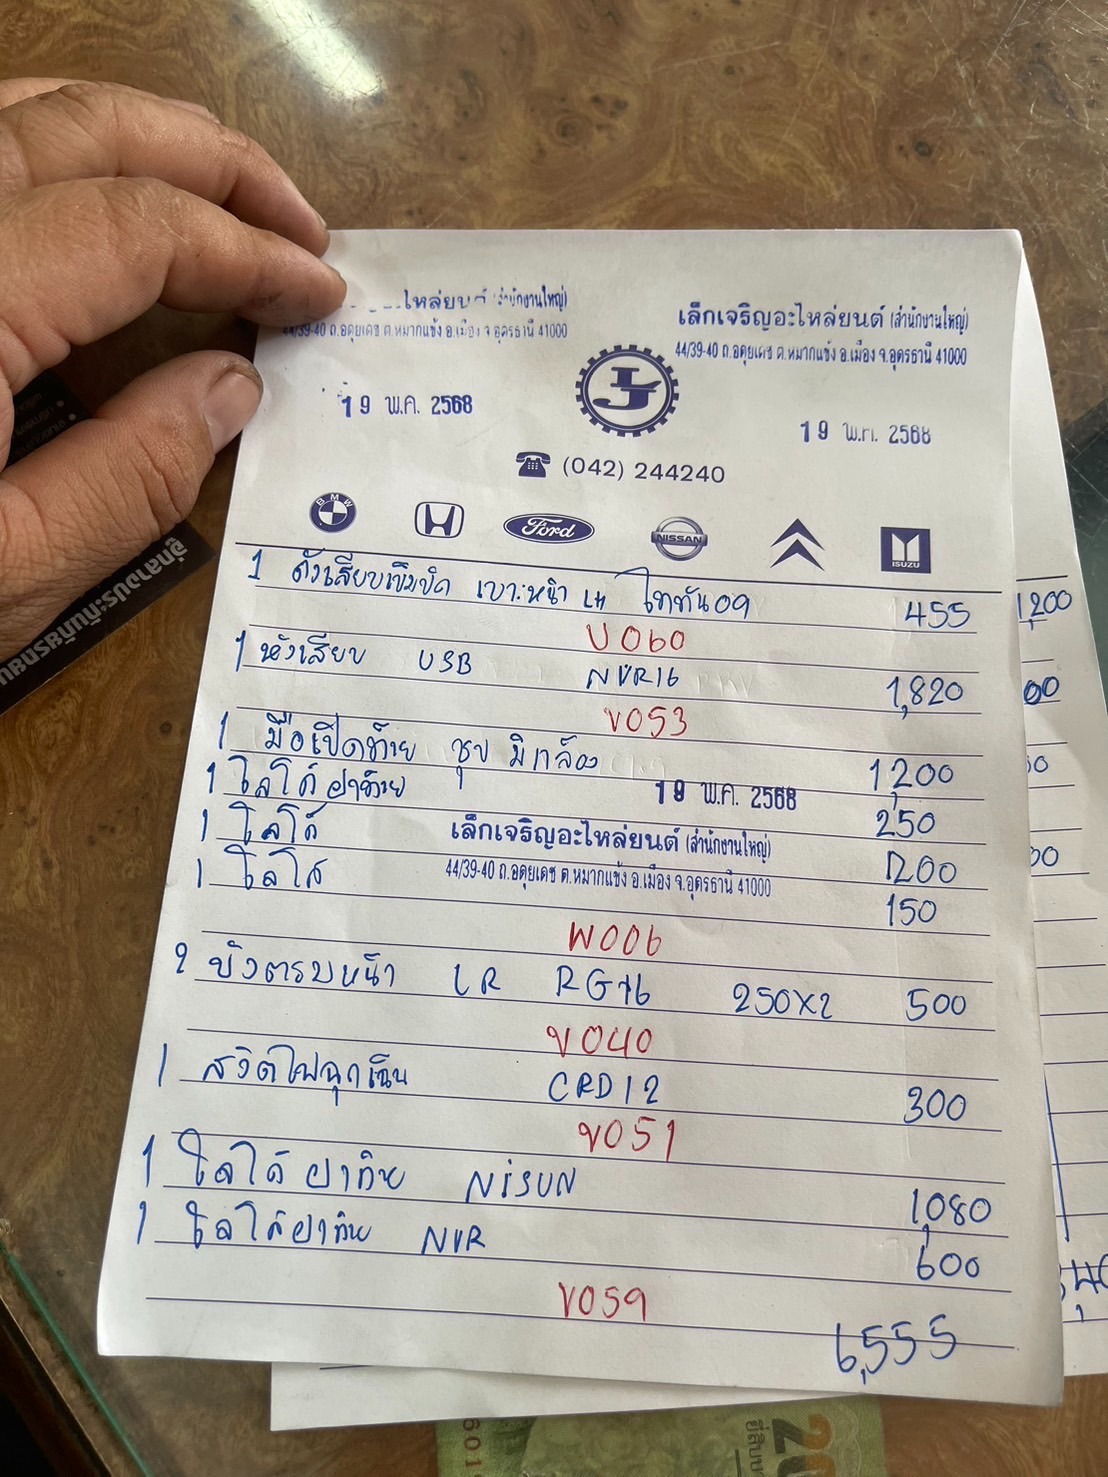 ไหล่ยนต์ (สำนักงานใหญ่)
44/39-40 ถ.อดุยเดช ต.หมากแข้ง อ.เมือง จ.อุดรธานี 41000
เล็กเจริญอะไหล่ยนต์ (สำนักงานใหญ่)
44/39-40 ถ.อดุยเดช ต.หมากแข้ง อ.เมือง จ.อุดรธานี 41000
19 พ.ค. 2568
19 พ.ค. 2568
(042) 244240
BMW Ford NISSAN ISUZU
1 เบาะหน้า LH ไททัน09 455
V060
1 USB NVR16 1,820
V053
1 มือเปิดท้าย ชุบ มีกล้อง 1,200
1 โลโก้ ฝาท้าย 250
19 พ.ค. 2568
1 โลโก้ 200
เล็กเจริญอะไหล่ยนต์ (สำนักงานใหญ่)
44/39-40 ถ.อดุยเดช ต.หมากแข้ง อ.เมือง จ.อุดรธานี 41000
1 โลโก้ 150
W006
2 LR 250X2 500
V040
1 สวิตไฟฉุกเฉิน CRD12 300
V051
1 โลโก้ ฝาท้าย NiSUN 1,080
1 โลโก้ฝาท้าย NVR 600
V059
6,555
1,200